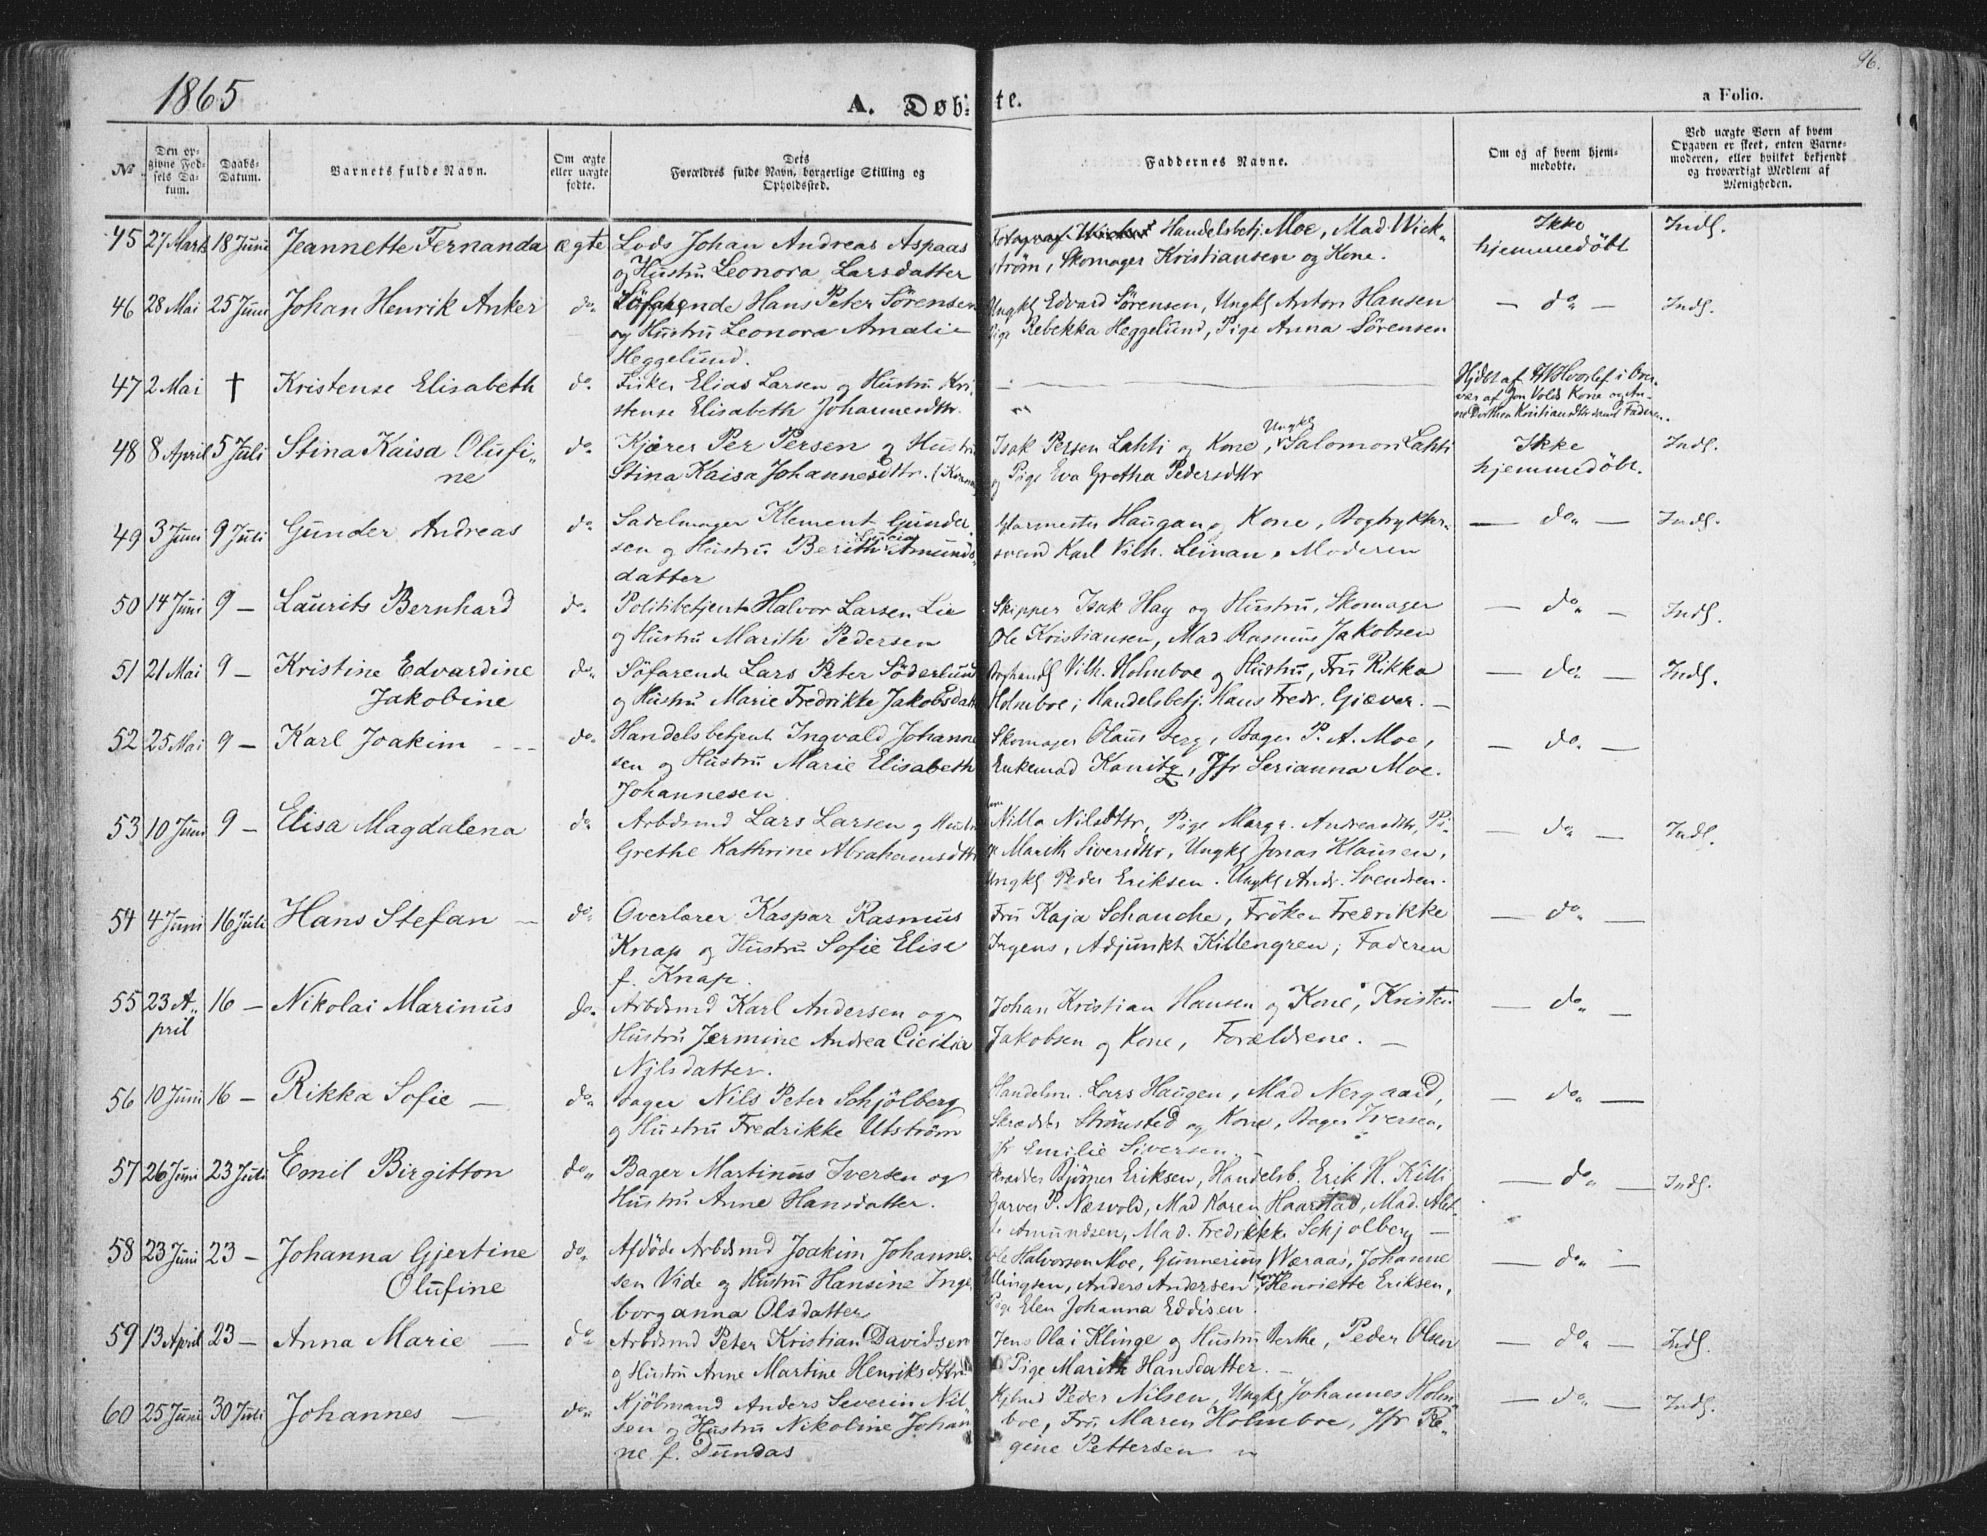 1865
A. Døbte.
96.
a Folio.
№
Den opgivne Fødsels Datum.
Daabs-Datum.
Barnets fulde Navn.
Om ægte eller uægte fødte.
Dets Forældres fulde Navn, borgerlige Stilling og Opholdssted.
Faddernes Navne.
Om og af hvem hjemmedøbt.
Ved uægte Børn af hvem Opgaven er skeet, enten Barnemoderen, eller hvilket bekjendt og troværdigt Medlem af Menigheden.
45 27 Marts 18 Juni Jeannette Fernanda ægte Lods Johan Andreas Aspaas Handelsbetj. Moe, Mad. Wick- Ikke Indf.
og Hustru Leonora Larsdatter strøm, Skomager Kristiansen og Kone. hjemmedöbt
46 28 Mai 25 Juni Johan Henrik Anker do Söfarende Hans Peter Sörensen Ungkf Edvard Sørensen, Ungkf Anton Hansen — do — Indf.
og Hustru Leonora Amalie Pige Rebekka Heggelund, Pige Anna Sörensen
Heggelund.
47 2 Mai † Kristense Elisabeth do Fisker Elias Larsen og Hustru Kri- Hjdbt af
stense Elisabeth Johannesdttr. vær af Jon Volds Kone og An-
ne Dorthea Kristiansdttr samt Faderen.
48 8 April 5 Juli Stina Kaisa Olufi- do Kjører Per Persen og Hustru Isak Persen Lahti og Kone, Ungkf Salomon Lahti Ikke Indf.
ne Stina Kaisa Johannesdttr. og Pige Eva Gretha Pedersdttr hjemmedöbt.
49 3 Juni 9 Juli Gunder Andreas do Sadelmager Klement Gunder- Glarmester Haugan og Kone, Bogtrykker- — do — Indf.
sen og Hustru Berith Lucia Amunds- svend Karl Vilh. Leinan, Moderen
datter
50 14 Juni 9 — Laurits Bernhard do Politibetjent Halvor Larsen Lie Skipper Isak Hay og Hustru, Skomager — do — Indf.
og Hustru Marith Pedersen Ole Kristiansen, Mad Rasmus Jakobsen
51 21 Mai 9 — Kristine Edvardine do Söfarende Lars Peter Söderlund Boghandl Vilh. Holmboe og Hustru, Fru Rikka — do — Indf.
Jakobine og Hustru Marie Fredrikke Jakobsdatt Holmboe; Handelsbetj. Hans Fredr. Giæver. —
52 25 Mai 9 — Karl Joakim do Handelsbetjent Ingvald Johanne- Skomager Olaus Berg, Bager P. A. Moe, — do —
sen og Hustru Marie Elisabeth Enkemad Kanitz, Jfr Serianna Moe.
Johannesen
53 10 Juni 9 — Elisa Magdalena do Arbdsmd Lars Larsen og Hustru Nilla Nilsdttr, Pige Margr. Andreasdttr, Pi- — do — Indf.
Grethe Kathrine Abrahamsdttr ge Marith Siversdttr, Ungkf Jonas Klausen,
Ungkf Peder Eriksen. Ungkf Andr. Svendsen.
54 4 Juni 16 Juli Hans Stefan — do Overlærer Kaspar Rasmus Fru Kaja Schanche, Fröken Fredrikke — do —
Knap og Hustru Sofie Elise Irgens, Adjunkt Killengren, Faderen
f. Knap.
55 23 A- 16 — Nikolai Marinus do Arbdsmd Karl Andersen og Johan Kristian Hansen og Kone, Kristen — do —
pril Hustru Jermine Andrea Cicilia Jakobsen og Kone, Forældrene. —
Nilsdatter.
56 10 Juni 16 — Rikka Sofie — do Bager Nils Peter Schjölberg Handelsm. Lars Haugen, Mad Nergaard, — do —
og Hustru Fredrikke Utström Skrædder Strömsted og Kone, Bager Iversen,
Jfr Emilie Siversen. —
57 26 Juni 23 Juli Emil Birgitton do Bager Martinus Iversen og Skrædder Björner Eriksen, Handelsb. Erik H. Killi — do — Indf.
Hustru Anne Hansdatter. Garver P. Næsvold, Mad Karen Haarstad, Mad.
Amundsen, Mad. Fredrikke Schjolberg —
58 23 Juni 23 — Johanna Gjertine do Afdöde Arbdsmd Joakim Johanne- Ole Halvorsen Moe, Gunnerius Wæraas, Johanne — do —
Olufine sen Vide og Hustru Hansine Inge- Ellingsen, Anders Andersen, Kone Henriette Eriksen,
borganna Olsdatter Pige Elen Johanna Eddisen.
59 13 April 23 — Anna Marie — do Arbdsmd Peter Kristian Davidsen Jens Olai Klinge og Hustru Berthe, Peder Olsen — do — Indf.
og Hustru Anne Martine Henriksdttr Pige Marith Hansdatter. —
60 25 Juni 30 Juli Johannes — do Kjöbmand Anders Severin Nil- Kjbmd Peder Nilsen, Ungkf Johannes Holm- — do — Indf.
sen og Hustru Nikoline Johan- boe, Fru Maren Holmboe, Jfr Re-
ne f. Dundas gine Pettersen